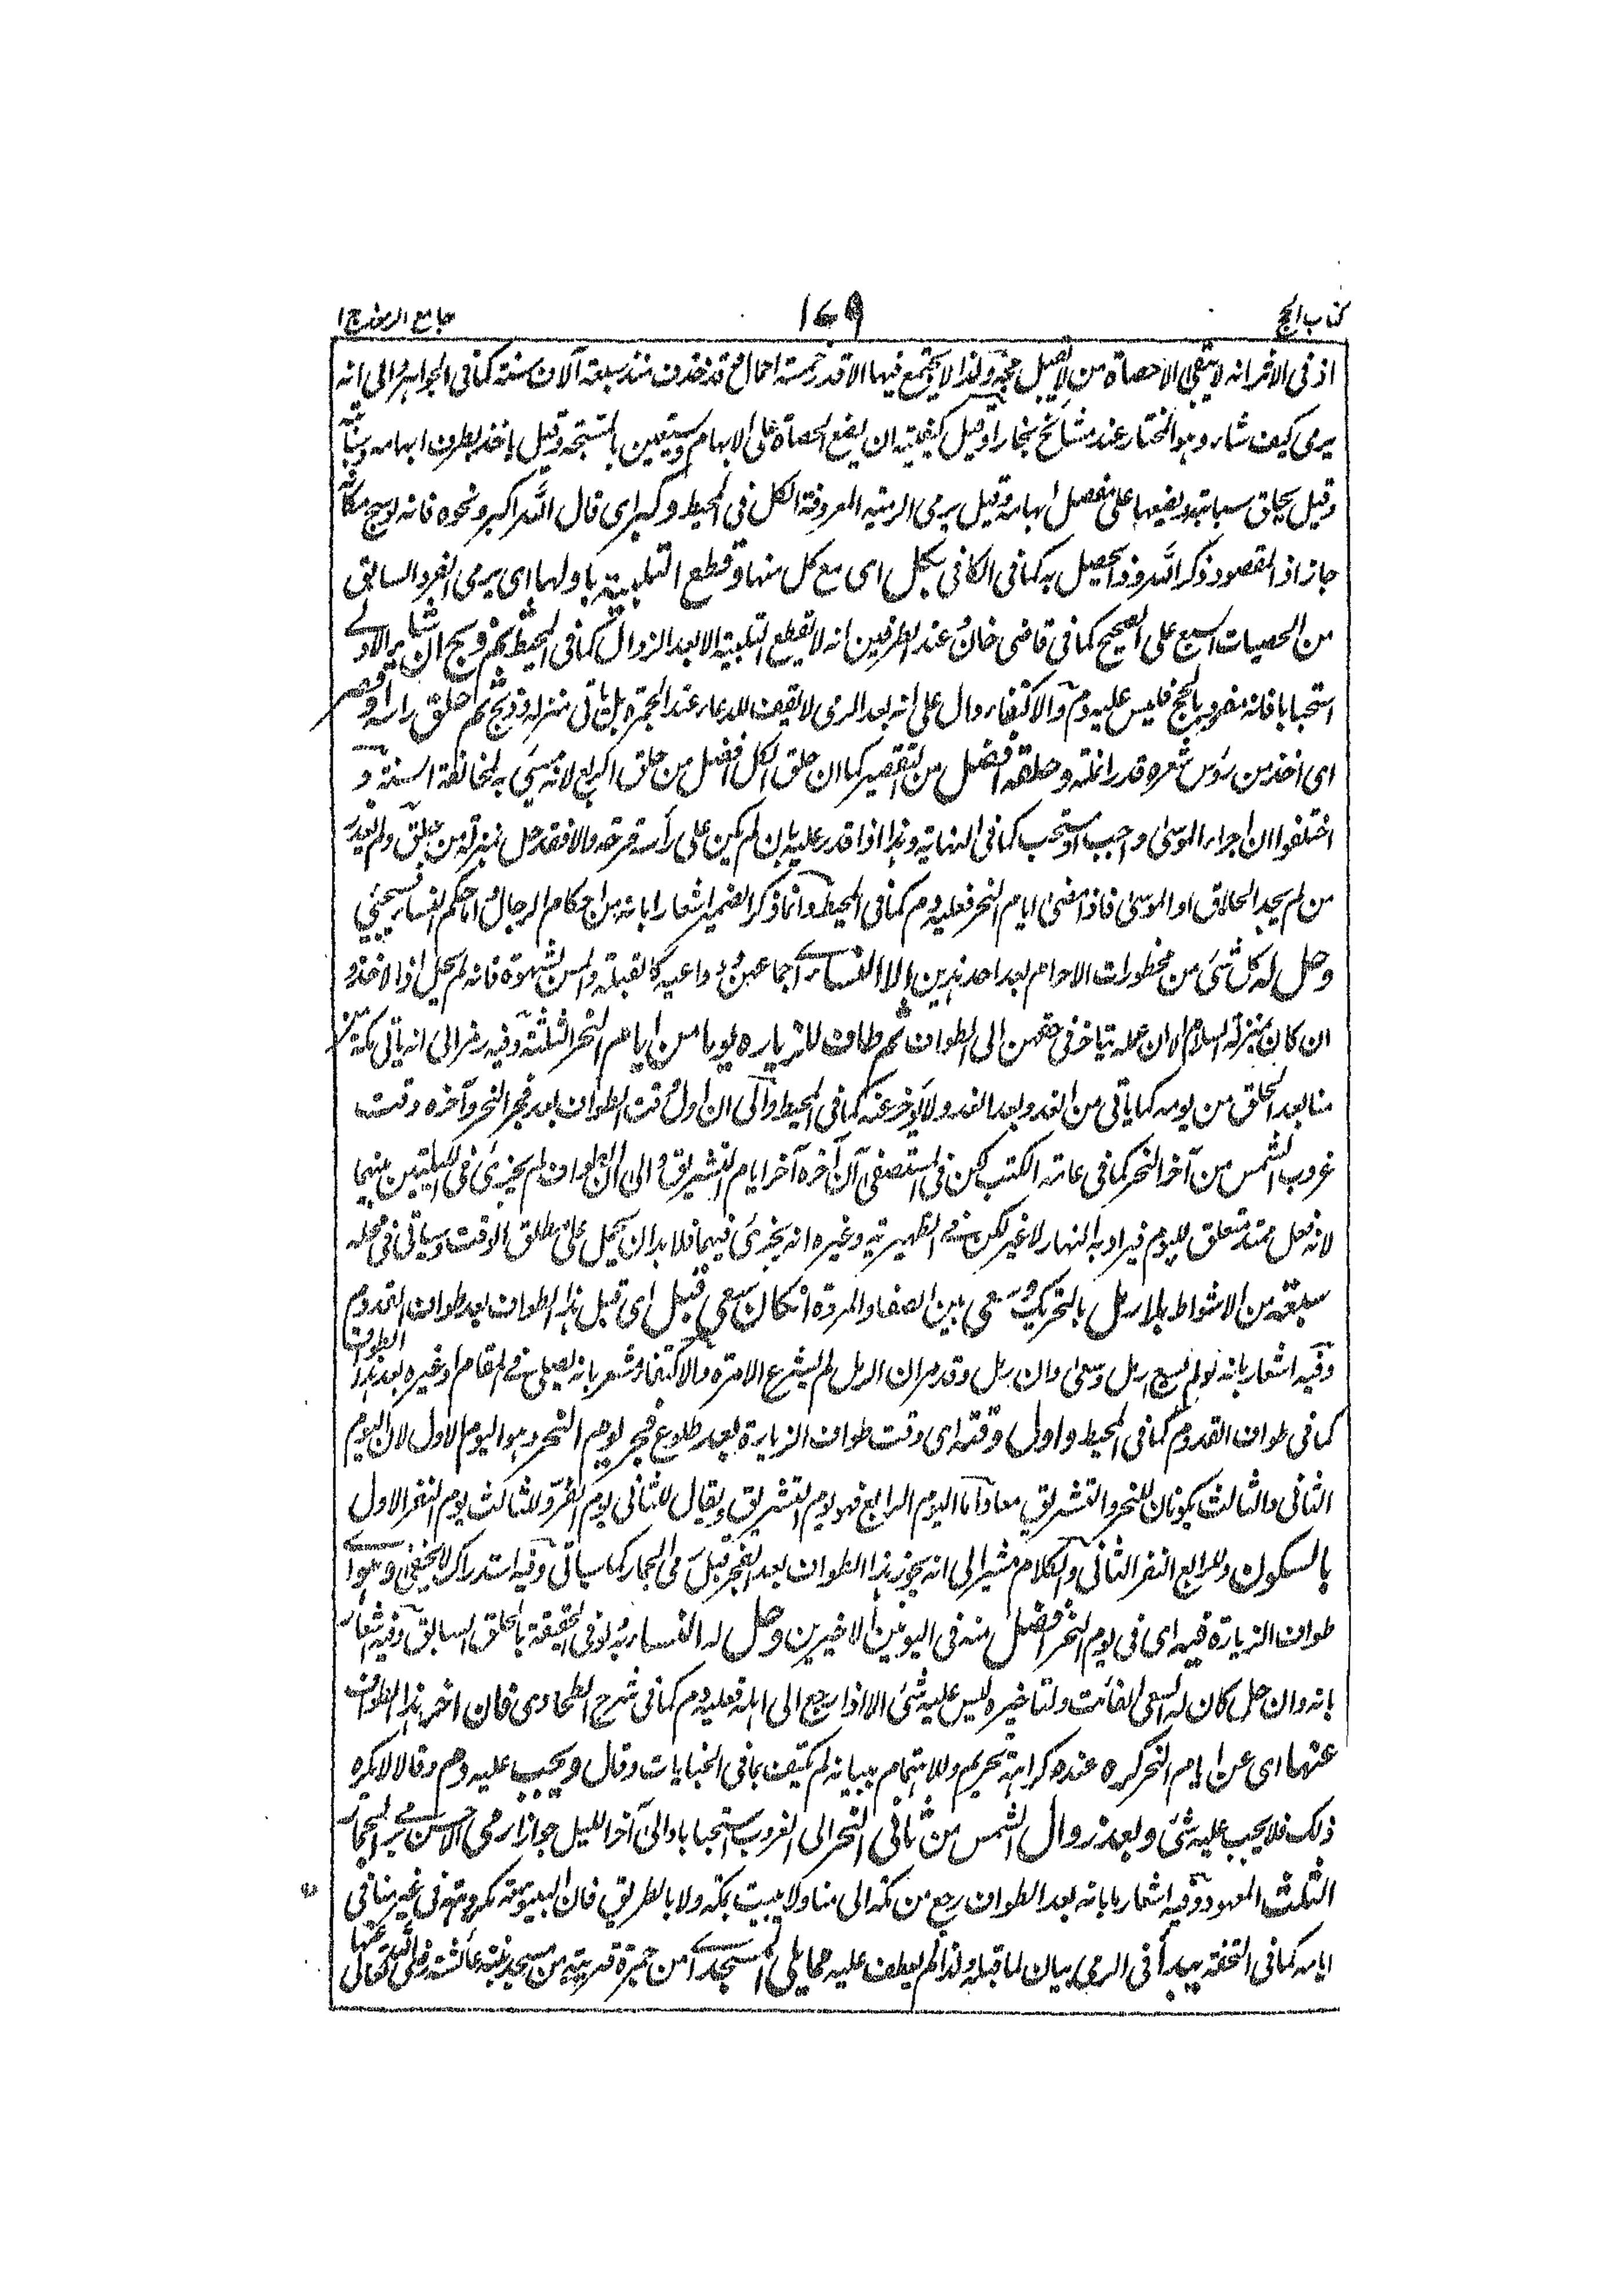 كتاب الحج
179
جامع الرموز ج ١
اذ فى الاثر انه لا يبقى الا حصاة من لا يقبل حجه ولذا لا يجتمع فيها الا قدر خمسة احمال مع قد خذف منذ سبعة آلاف سنة كما فى الجواهر والى انه
يرمى كيف شاء وهو المختار عند مشائخ بخارا وقيل كيفيته ان يضع الحصاة على الابهام ويستعين بالمسبحة وقيل ياخذ بطرف ابهامه وسبابته
وقيل يحلق سبابته ويضعها على مفصل ابهامه وقيل يرمى الرمية المعروفة الكل فى المحيط وكبر اى قال الله اكبر ونحوه فانه لو سبح مكانه
جاز اذ المقصود ذكر الله وذا يحصل به كما فى الكافى بكل اى مع كل منها وقطع التلبية باولها اى يرمى الفرد السابق
من الحصيات السبع على الصحيح كما فى قاضى خان وعند الطرفين انه لا يقطع التلبية الا بعد الزوال كما فى المحيط ثم ذبح ان شاء الاولى
استحبابا فانه مفرد بالحج فليس عليه دم والاكتفاء دال على انه بعد الرمى لا يقف للدعاء عند الجمرة بل ياتى منزله وذبح ثم حلق راسه او قصر
اى اخذ من رؤس شعره قدر انملة وحلقه افضل من التقصير كما ان حلق الكل افضل من حلق الربع لانه مسيئ به لمخالفة السنة و
اختلفوا ان اجراء الموسى واجب او مستحب كما فى النهاية وهذا اذا قدر عليه بان لم يكن على رأسه قرحة والا فقد حل بمنزلة من حلق ولم يعذر
من لم يجد الحلاق او الموسى فاذا مضى ايام النحر فعليه دم كما فى المحيط وانما ذكر الضمير اشعارا بانه من احكام الرجال واما حكم النساء فسيجئ
وحل له كل شئ من محظورات الاحرام بعد احد هذين الا النساء اى جماعهن ودواعيه كالقبلة والمس لشهوة فانه لم يحل اذ الاخذ و
ان كان بمنزلة السلام الا ان عمله يتاخر فى حقهن الى الطواف ثم طاف للزيارة يوما من ايام النحر الثلثة وفيه رمز الى انه ياتى مكة من
منا بعد الحلق من يومه كما ياتى من الغد وبعد الغد ولا يؤخر عنه كما فى المحيط والى ان اول وقت الطواف بعد فجر النحر وآخره وقت
غروب الشمس من آخر النحر كما فى عامة الكتب لكن فى المستصفى آن آخره آخر ايام التشريق والى ان الطواف لم يجزئ فى الليلتين منهما
لانه فعل ممتد متعلق لليوم فيراد به النهار لا غير لكن فى الظهيرية وغيره انه يجزئ فيهما فلا بد ان يحمل على مطلق الوقت وسياتى فى محله
سبعة من الاشواط بلا رمل بالتحريك وسعى بين الصفا والمروة ان كان سعى قبل اى قبل هذا الطواف بعد طواف القدوم
وفيه اشعار بانه لو لم يسع رمل وسعى وان رمل وقد مر ان الرمل لم يشرع الا مرة والاكتفاء مشعر بانه يصلى فى المقام او غيره بعد هذا الطواف
كما فى طواف القدوم كما فى المحيط واول وقته اى وقت طواف الزيارة بعد طلوع فجر يوم النحر وهو اليوم الاول لان اليوم
الثانى والثالث يكونان للنحر والتشريق معا واما اليوم الرابع فهو يوم التشريق ويقال للثانى يوم القر وللثالث يوم النفر الاول
بالسكون وللرابع النفر الثانى والكلام مشير الى انه يجوز هذا الطواف بعد الفجر قبل رمى الجمار كما سياتى وفيه استدراك لا يخفى وهو اى
طواف الزيارة فيه اى فى يوم النحر افضل منه فى اليومين الاخيرين وحل له النساء به وفى الحقيقة بالحلق السابق وفيه اشعار
بانه وان حل كان له السعى الفائت ولتاخيره ليس عليه شئ الا اذا رجع الى اهله فعليه دم كما فى شرح الطحاوى فان اخر هذا الطواف
عنها اى عن ايام النحر كره عنده كراهة تحريم وللاهتمام ببيانه لم يكتف بما فى الجنايات وقال ويجب عليه دم وقالا لا يكره
ذلك فلا يجب عليه شئ وبعد زوال الشمس من ثانى النحر الى الغروب استحبابا والى آخر الليل جوازا رمى الجمار
الثلث المعهودة وفيه اشعار بانه بعد الطواف رجع من مكة الى منا ولا يبيت بمكة ولا بالطريق فان البيتوتة مكروهة فى غير منا فى
ايامه كما فى التحفة يبدأ فى الرمى بيان لما قبله ولذا لم يعطف عليه مما يلى المسجد اى من جمرة قريبة من مسجد عائشة رضى الله تعالى عنها